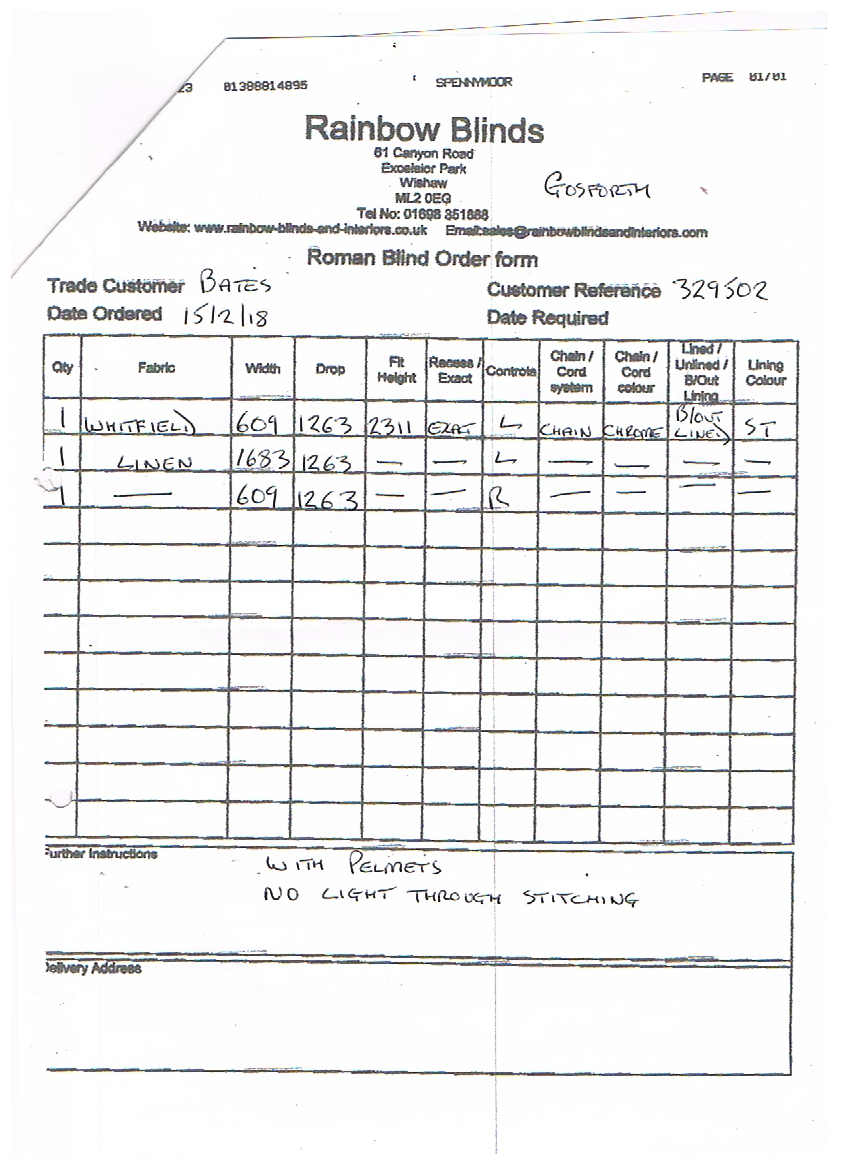 23 01388814895 SPENNYMOOR PAGE 01/01
Rainbow Blinds
61 Canyon Road
Excelsior Park
Wishaw
ML2 0EG
GOSFORTH
Tel No: 01698 351888
Website: www.rainbow-blinds-and-interiors.co.uk Email:sales@rainbowblindsandinteriors.com
Roman Blind Order form
Trade Customer BATES Customer Reference 329502
Date Ordered 15/2/18 Date Required
Qty Fabric Width Drop Fit Height Recess / Exact Controls Chain / Cord system Chain / Cord colour Lined / Unlined / B/Out Lining Lining Colour
1 WHITFIELD 609 1263 2311 EXAC L CHAIN CHROME B/OUT LINED ST
1 LINEN 1683 1263 — — L — — — —
1 — 609 1263 — — R — — — —
Further Instructions
WITH PELMETS
NO LIGHT THROUGH STITCHING
Delivery Address